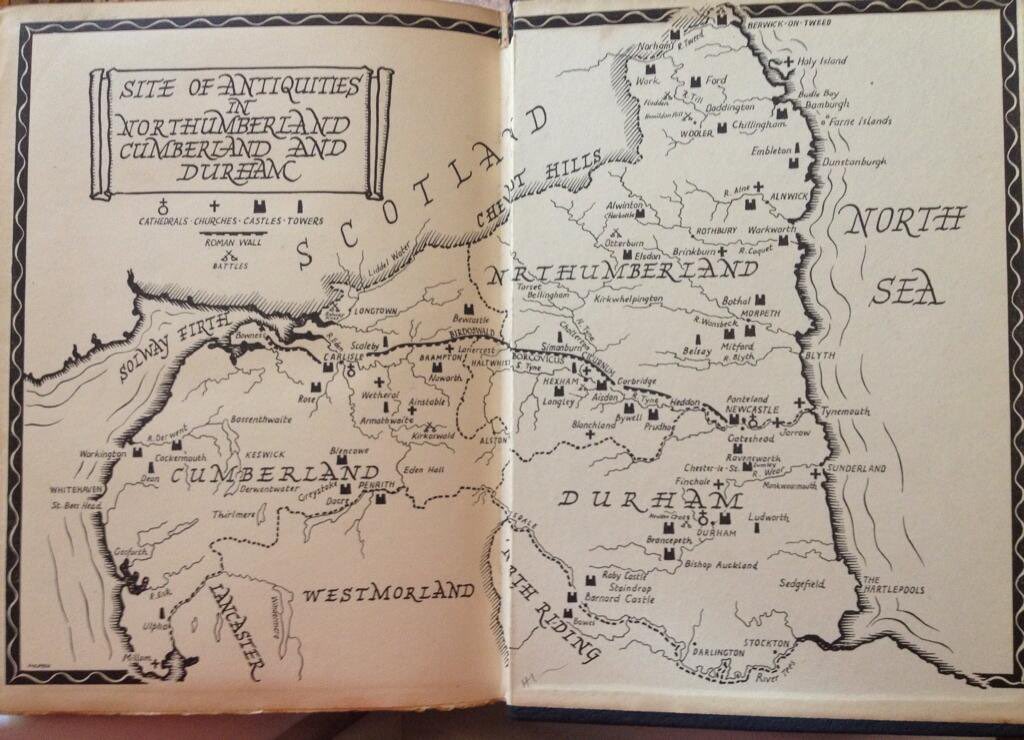 SITE OF ANTIQUITIES
IN
NORTHUMBERLAND
CUMBERLAND AND
DURHAM
CATHEDRALS · CHURCHES · CASTLES · TOWERS
ROMAN WALL
BATTLES
SCOTLAND
CHEVIOT HILLS
Liddel Water
LONGTOWN
SOLWAY FIRTH
Bowness
R. Eden
Scaleby
Bewcastle
BIRDOSWALD
CARLISLE
Lanercost
BRAMPTON
HALTWHIS
Naworth
Rose
Wetheral
Ainstable
Armathwaite
Kirkoswald
ALSTON
Bassenthwaite
R. Derwent
Workington
Cockermouth
KESWICK
Blencowe
Dean
CUMBERLAND
Eden Hall
Derwentwater
Greystoke
PENRITH
Dacre
WHITEHAVEN
St. Bees Head
Thirlmere
Gosforth
R. Esk
WESTMORLAND
LANCASTER
Windermere
Ulpha
Millom
BERWICK-ON-TWEED
Norham
R. Tweed
Holy Island
Wark
Ford
R. Till
Budle Bay
Flodden
Doddington
Bamburgh
Homildon Hill
Chillingham
Farne Islands
WOOLER
Embleton
Dunstanburgh
R. Alne
ALNWICK
Alwinton
Harbottle
NORTH
SEA
ROTHBURY
Warkworth
Otterburn
Elsdon
Brinkburn
R. Coquet
NRTHUMBERLAND
Tarset
Bellingham
Kirkwhelpington
Bothal
MORPETH
R. Wansbeck
Mitford
Chollerton
R. Tyne
Simonburn
CILURNUM
Belsay
R. Blyth
BLYTH
BORCOVICUS
S. Tyne
HEXHAM
Corbridge
Langley
Aisdon
R. Tyne
Heddon
Ponteland
NEWCASTLE
Tynemouth
Bywell
Prudhoe
Blanchland
Jarrow
Gateshead
Ravensworth
Chester-le-St.
Lumley
R. Wear
SUNDERLAND
Finchale
Monkwearmouth
DURHAM
Nevilles Cross
Ludworth
DURHAM
Brancepeth
Bishop Auckland
Raby Castle
Staindrop
Sedgefield
THE
HARTLEPOOLS
Barnard Castle
NORTH RIDING
Bowes
STOCKTON
DARLINGTON
River Tees